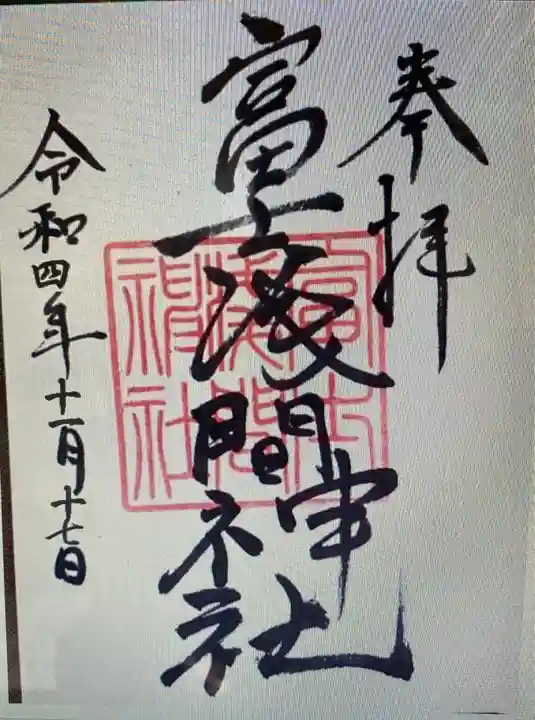 奉拝
富士浅間神社
富士
浅間
神社
令和四年十一月十七日